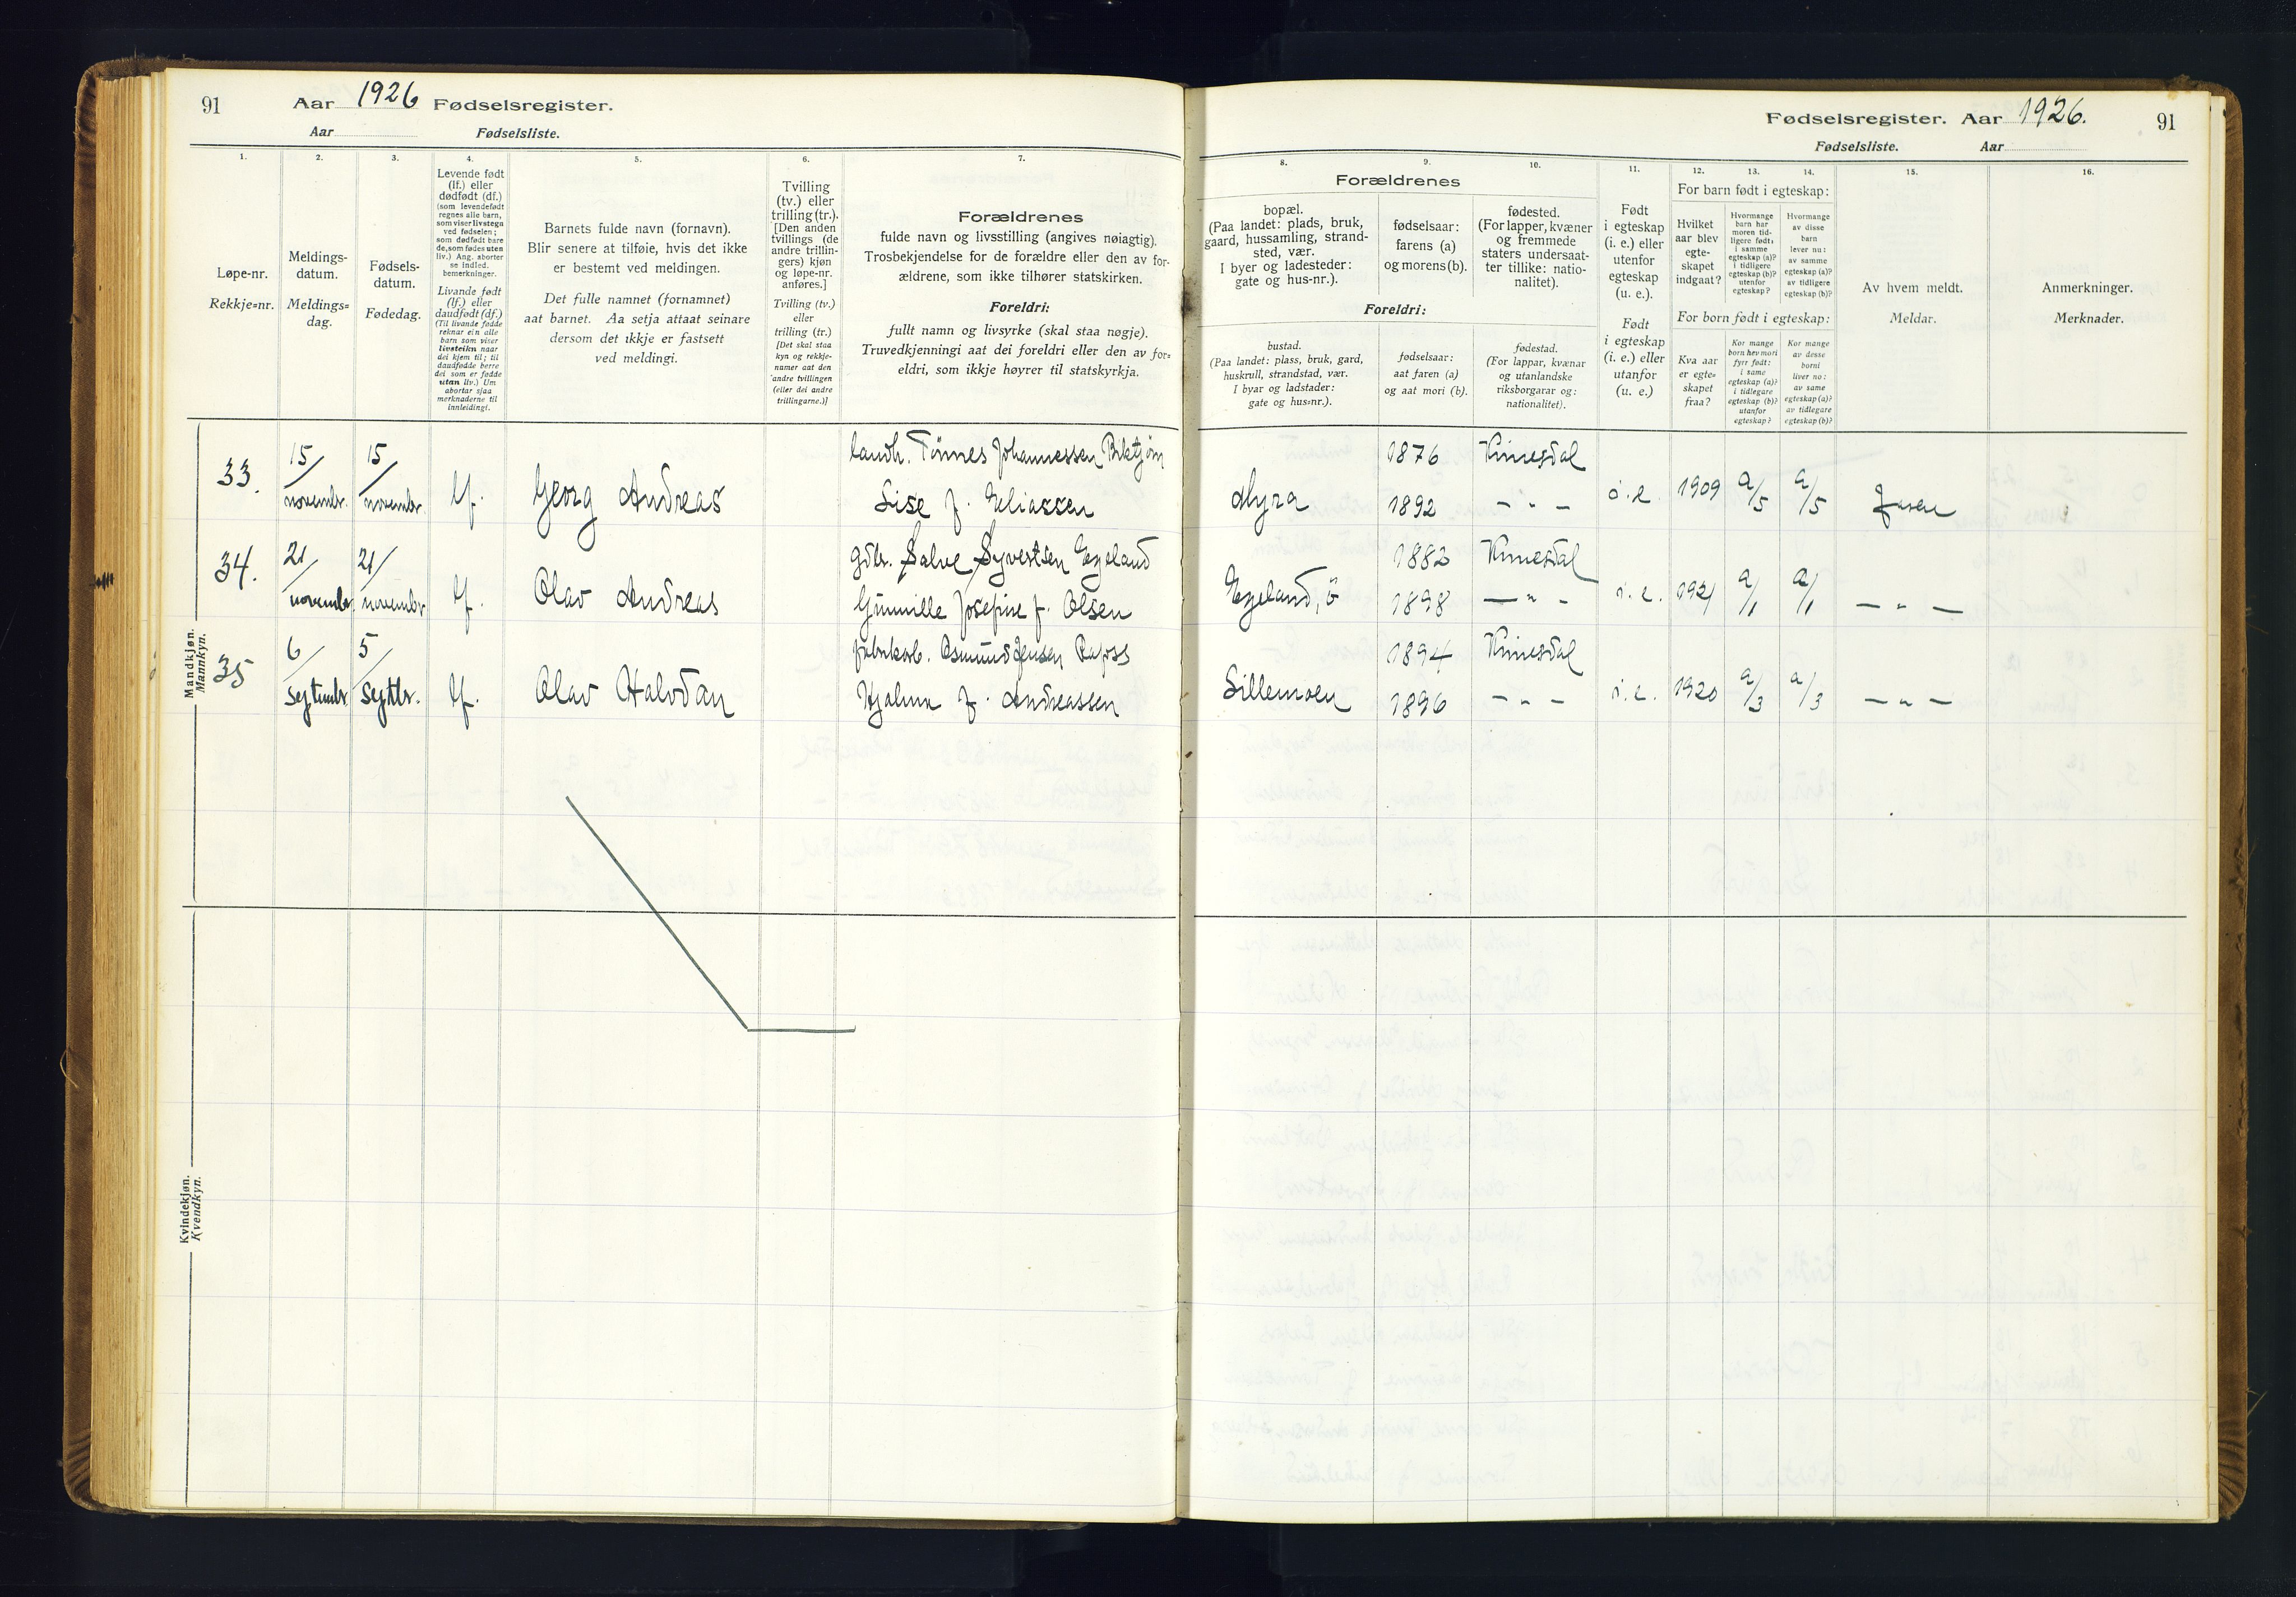 91 Aar 1926 Fødselsregister.
Aar Fødselsliste.
Fødselsregister. Aar 1926. 91
Fødselsliste. Aar
1.
Løpe-nr.
Rekkje=nr.
2.
Meldings-
datum.
Meldings=
dag.
3.
Fødsels-
datum.
Fødedag.
4.
Levende født
(lf.) eller
dødfødt (df.)
(som levendefødt
regnes alle barn,
som viser livstegn
ved fødselen;
som dødfødt bare
de, som fødes uten
liv.) Ang. aborter
se indled.
bemerkninger.
Livande født
(lf.) eller
daudfødt (df.)
(Til livande fødde
reknar ein alle
barn som viser
livsteikn naar
dei kjem til; til
daudfødde berre
dei som er fødde
utan liv.) Um
abortar sjaa
merknaderne til
innleidingi.
5.
Barnets fulde navn (fornavn).
Blir senere at tilføie, hvis det ikke
er bestemt ved meldingen.
Det fulle namnet (fornamnet)
aat barnet. Aa setja attaat seinare
dersom det ikkje er fastsett
ved meldingi.
6.
Tvilling
(tv.) eller
trilling (tr.).
[Den anden
tvillings (de
andre trillin-
gers) kjøn
og løpe-nr.
anføres.]
Tvilling (tv.)
eller
trilling (tr.)
[Det skal staa
kyn og rekkje-
numer aat den
andre tvillingen
(eller dei andre
trillingarne.)]
7.
Forældrenes
fulde navn og livsstilling (angives nøiagtig).
Trosbekjendelse for de forældre eller den av for-
ældrene, som ikke tilhører statskirken.
Foreldri:
fullt namn og livsyrke (skal staa nøgje).
Truvedkjenningi aat dei foreldri eller den av for=
eldri, som ikkje høyrer til statskyrkja.
8.
Forældrenes
bopæl.
(Paa landet: plads, bruk,
gaard, hussamling, strand-
sted, vær.
I byer og ladesteder:
gate og hus-nr.).
Foreldri:
bustad.
(Paa landet: plass, bruk, gard,
huskrull, strandstad, vær.
I byar og ladstader:
gate og hus=nr.).
9.
fødselsaar:
farens (a)
og morens (b).
fødselsaar:
aat faren (a)
og aat mori (b).
10.
fødested.
(For lapper, kvæner
og fremmede
staters undersaat-
ter tillike: natio-
nalitet).
fødestad.
(For lappar, kvænar
og utanlandske
riksborgarar og:
nationalitet).
11.
Født
i egteskap
(i. e.) eller
utenfor
egteskap
(u. e.).
Født
i egteskap
(i. e.) eller
utanfor
(u. e.)
12. 13. 14.
For barn født i egteskap:
Hvilket
aar blev
egte-
skapet
indgaat?
Hvormange
barn har
moren tid-
ligere født:
i samme
egteskap (a)?
i tidligere
egteskap (b)?
utenfor
egteskap?
Hvormange
av disse
barn
lever nu:
av samme
egteskap (a)?
av tidligere
egteskap (b)?
For born født i egteskap:
Kva aar
er egte=
skapet
fraa?
Kor mange
born hev mori
fyrr født:
i same
egteskap (a)?
i tidlegare
egteskap (b)?
utanfor
egteskap?
Kor mange
av desse
borni
liver no:
av same
egteskap (a)?
av tidlegare
egteskap (b)?
15.
Av hvem meldt.
Meldar.
16.
Anmerkninger.
Merknader.
Mandkjøn.
Mannkyn.
33. 15/novembr. 15/novembr. lf. Georg Andreas
landh. Tønnes Johannessen
Lise f. Eliassen
Myra 1876 Kvinesdal
1892 - " - i.e. 1909 a/5 a/5
34. 21/novembr 21/novembr lf. Olav Andreas
gdbr. Salve Syvertsen Egeland
Gunnille Josefine f. Olsen
Egeland, ö 1882 Kvinesdal
1898 - " - i.e. 1921 a/1 a/1 - " -
35 6/septembr 5/septbr. lf. Olav Halvdan
Osmund Jensen
Hjalma f. Andreassen
Lillemoen 1894 Kvinesdal
1896 - " - i.e. 1920 a/3 a/3 - " -
Kvindekjøn.
Kvendkyn.